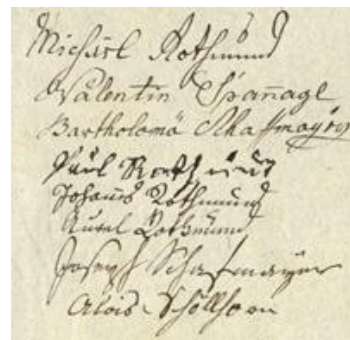 Michael Rothmund
Valentin Spanagl
Bartholomä Schaffmayer
Paul Rothmund
Johannes Rothmund
Rothmund
Joseph Schafmayer
Alois Schöllhorn